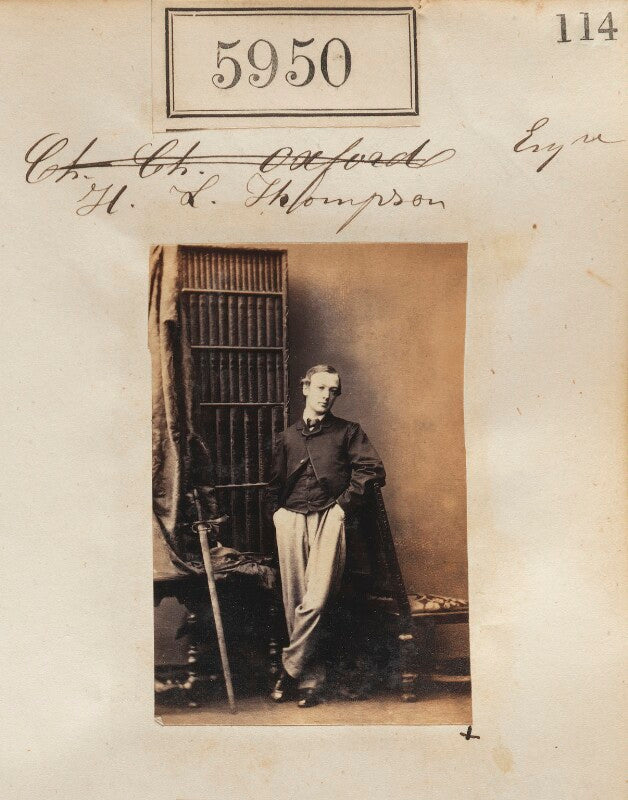 114
5950
Ch. Ch. Oxford
H. L. Thompson